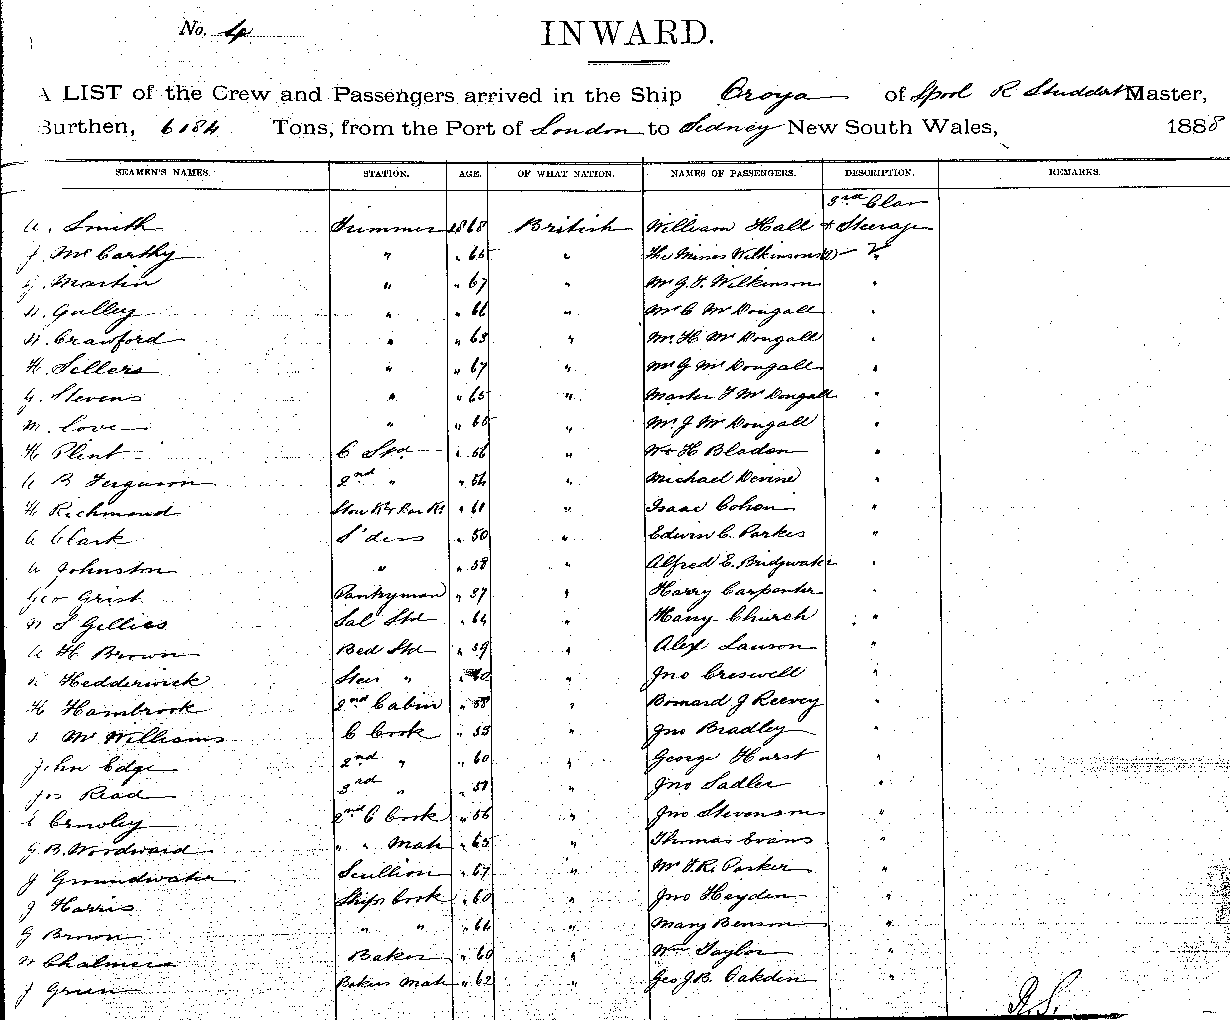 No. 4
INWARD.
A LIST of the Crew and Passengers arrived in the Ship Oroya of Lpool R Studdert Master,
Burthen, 6184 Tons, from the Port of London to Sidney New South Wales, 1888
SEAMEN'S NAMES. STATION. AGE. OF WHAT NATION. NAMES OF PASSENGERS. DESCRIPTION. REMARKS.
3rd Clas
A. Smith Trimmer 1868 British William Hall & Steerage
J McCarthy " " 65 " The Misses Wilkinson "
G. Martin " " 67 " Mr G. T. Wilkinson "
Gulley " " 66 " Mr C McDougall "
Crawford " " 63 " Mr H McDougall "
H. Sellers " " 67 " Mr G McDougall "
G. Stevens " " 65 " Master T McDougall "
M. Love " " 65 " Mr J McDougall "
H Plint C Std " 56 " H Bladon "
A B Ferguson 2nd " " 54 " Michael Devine "
H Richmond " 61 " Isaac Cohen "
A Clark " 50 " Edwin C. Parkes "
A Johnston " " 58 " Alfred E. Bridgwater "
Geo Grist Pantryman " 57 " Harry Carpenter "
S Gillies Sal Std " 64 " Harry Church "
A H Brown Bed Std " 59 " Alex Lawson "
Hedderwick " Jno Creswell "
H Hambrook 2nd Cabin " 58 " J Reevey "
McWilliams C Cook " 53 " Jno Bradley "
John Edge 2nd " " 60 " George Hurst "
Jos Read 3rd " " 51 " Jno Sadler "
Crowley 2nd C Cook " 56 " Jno Stevenson "
G. B. Woodward " " Mate " 65 " Thomas Evans "
J Groundwater Scullion " 67 " Mr T. R. Parker "
J Harris Ships Cook " 60 " Jno Heyden "
G Brown " " " 64 " Mary Benson "
Chalmers Baker " 60 " Wm Taylor "
J Green Bakers Mate " 62 " Geo J. B. Oakden "
R.S.